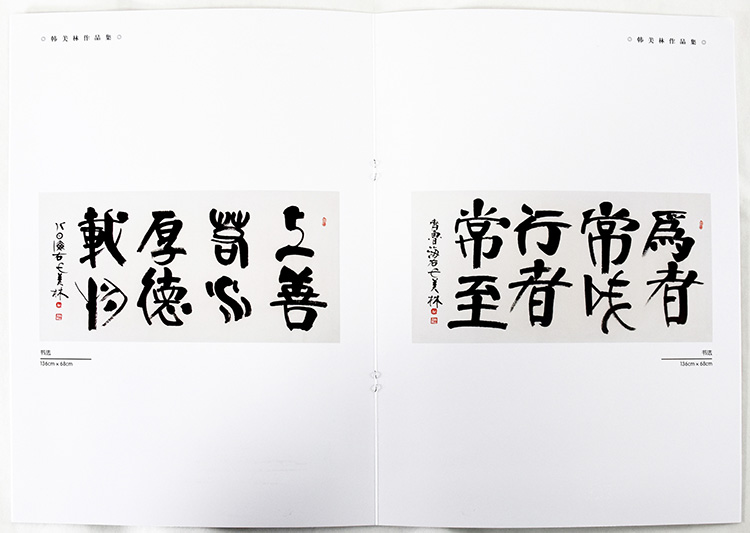 韩美林作品集
上善
若水
厚德
載物
美林
书选
136cm x 68cm
韩美林作品集
爲者
常成
行者
常至
美林
书选
136cm x 68cm